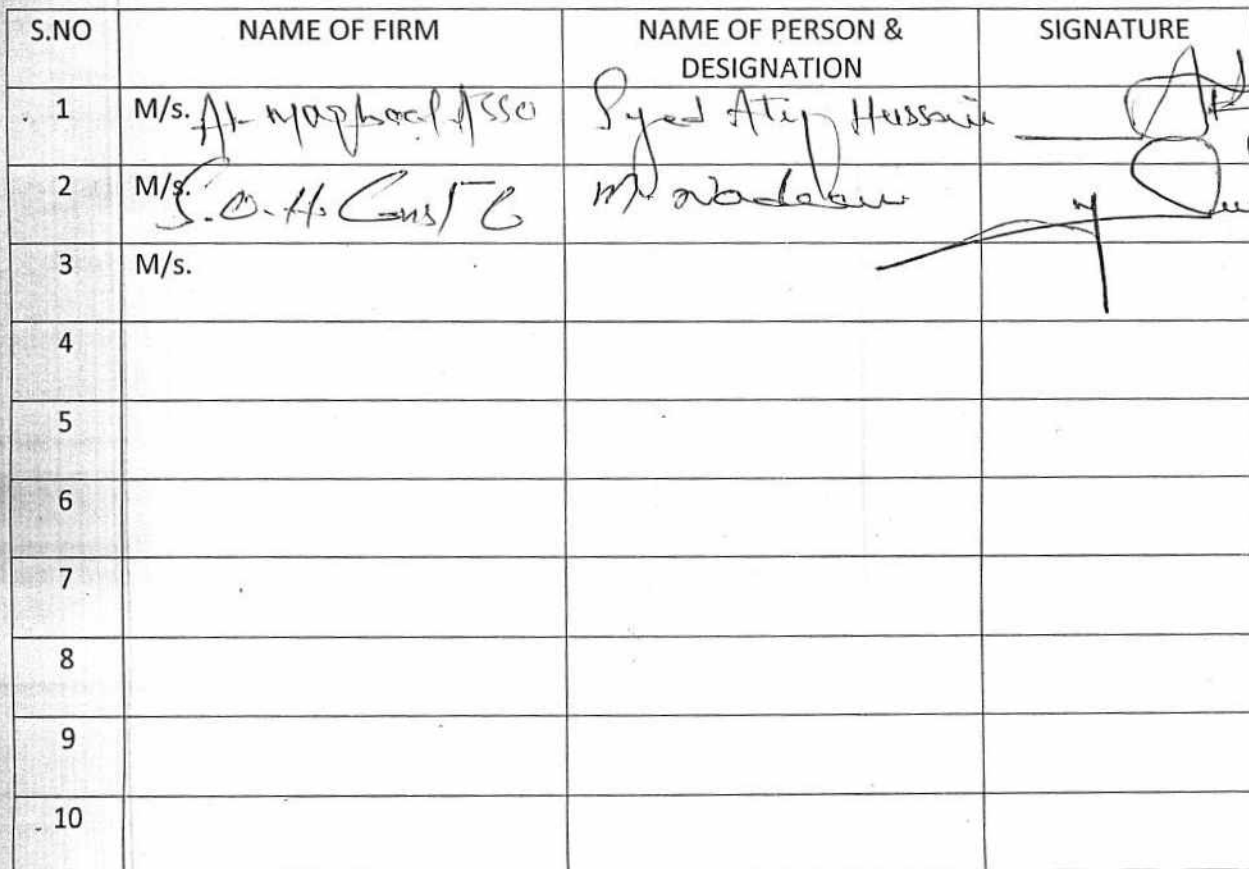 S.NO NAME OF FIRM NAME OF PERSON & DESIGNATION SIGNATURE
1 M/s. Al- Asso Syed Atiq Hussain
2 M/s. S.O.H. Const Co
3 M/s.
4
5
6
7
8
9
10